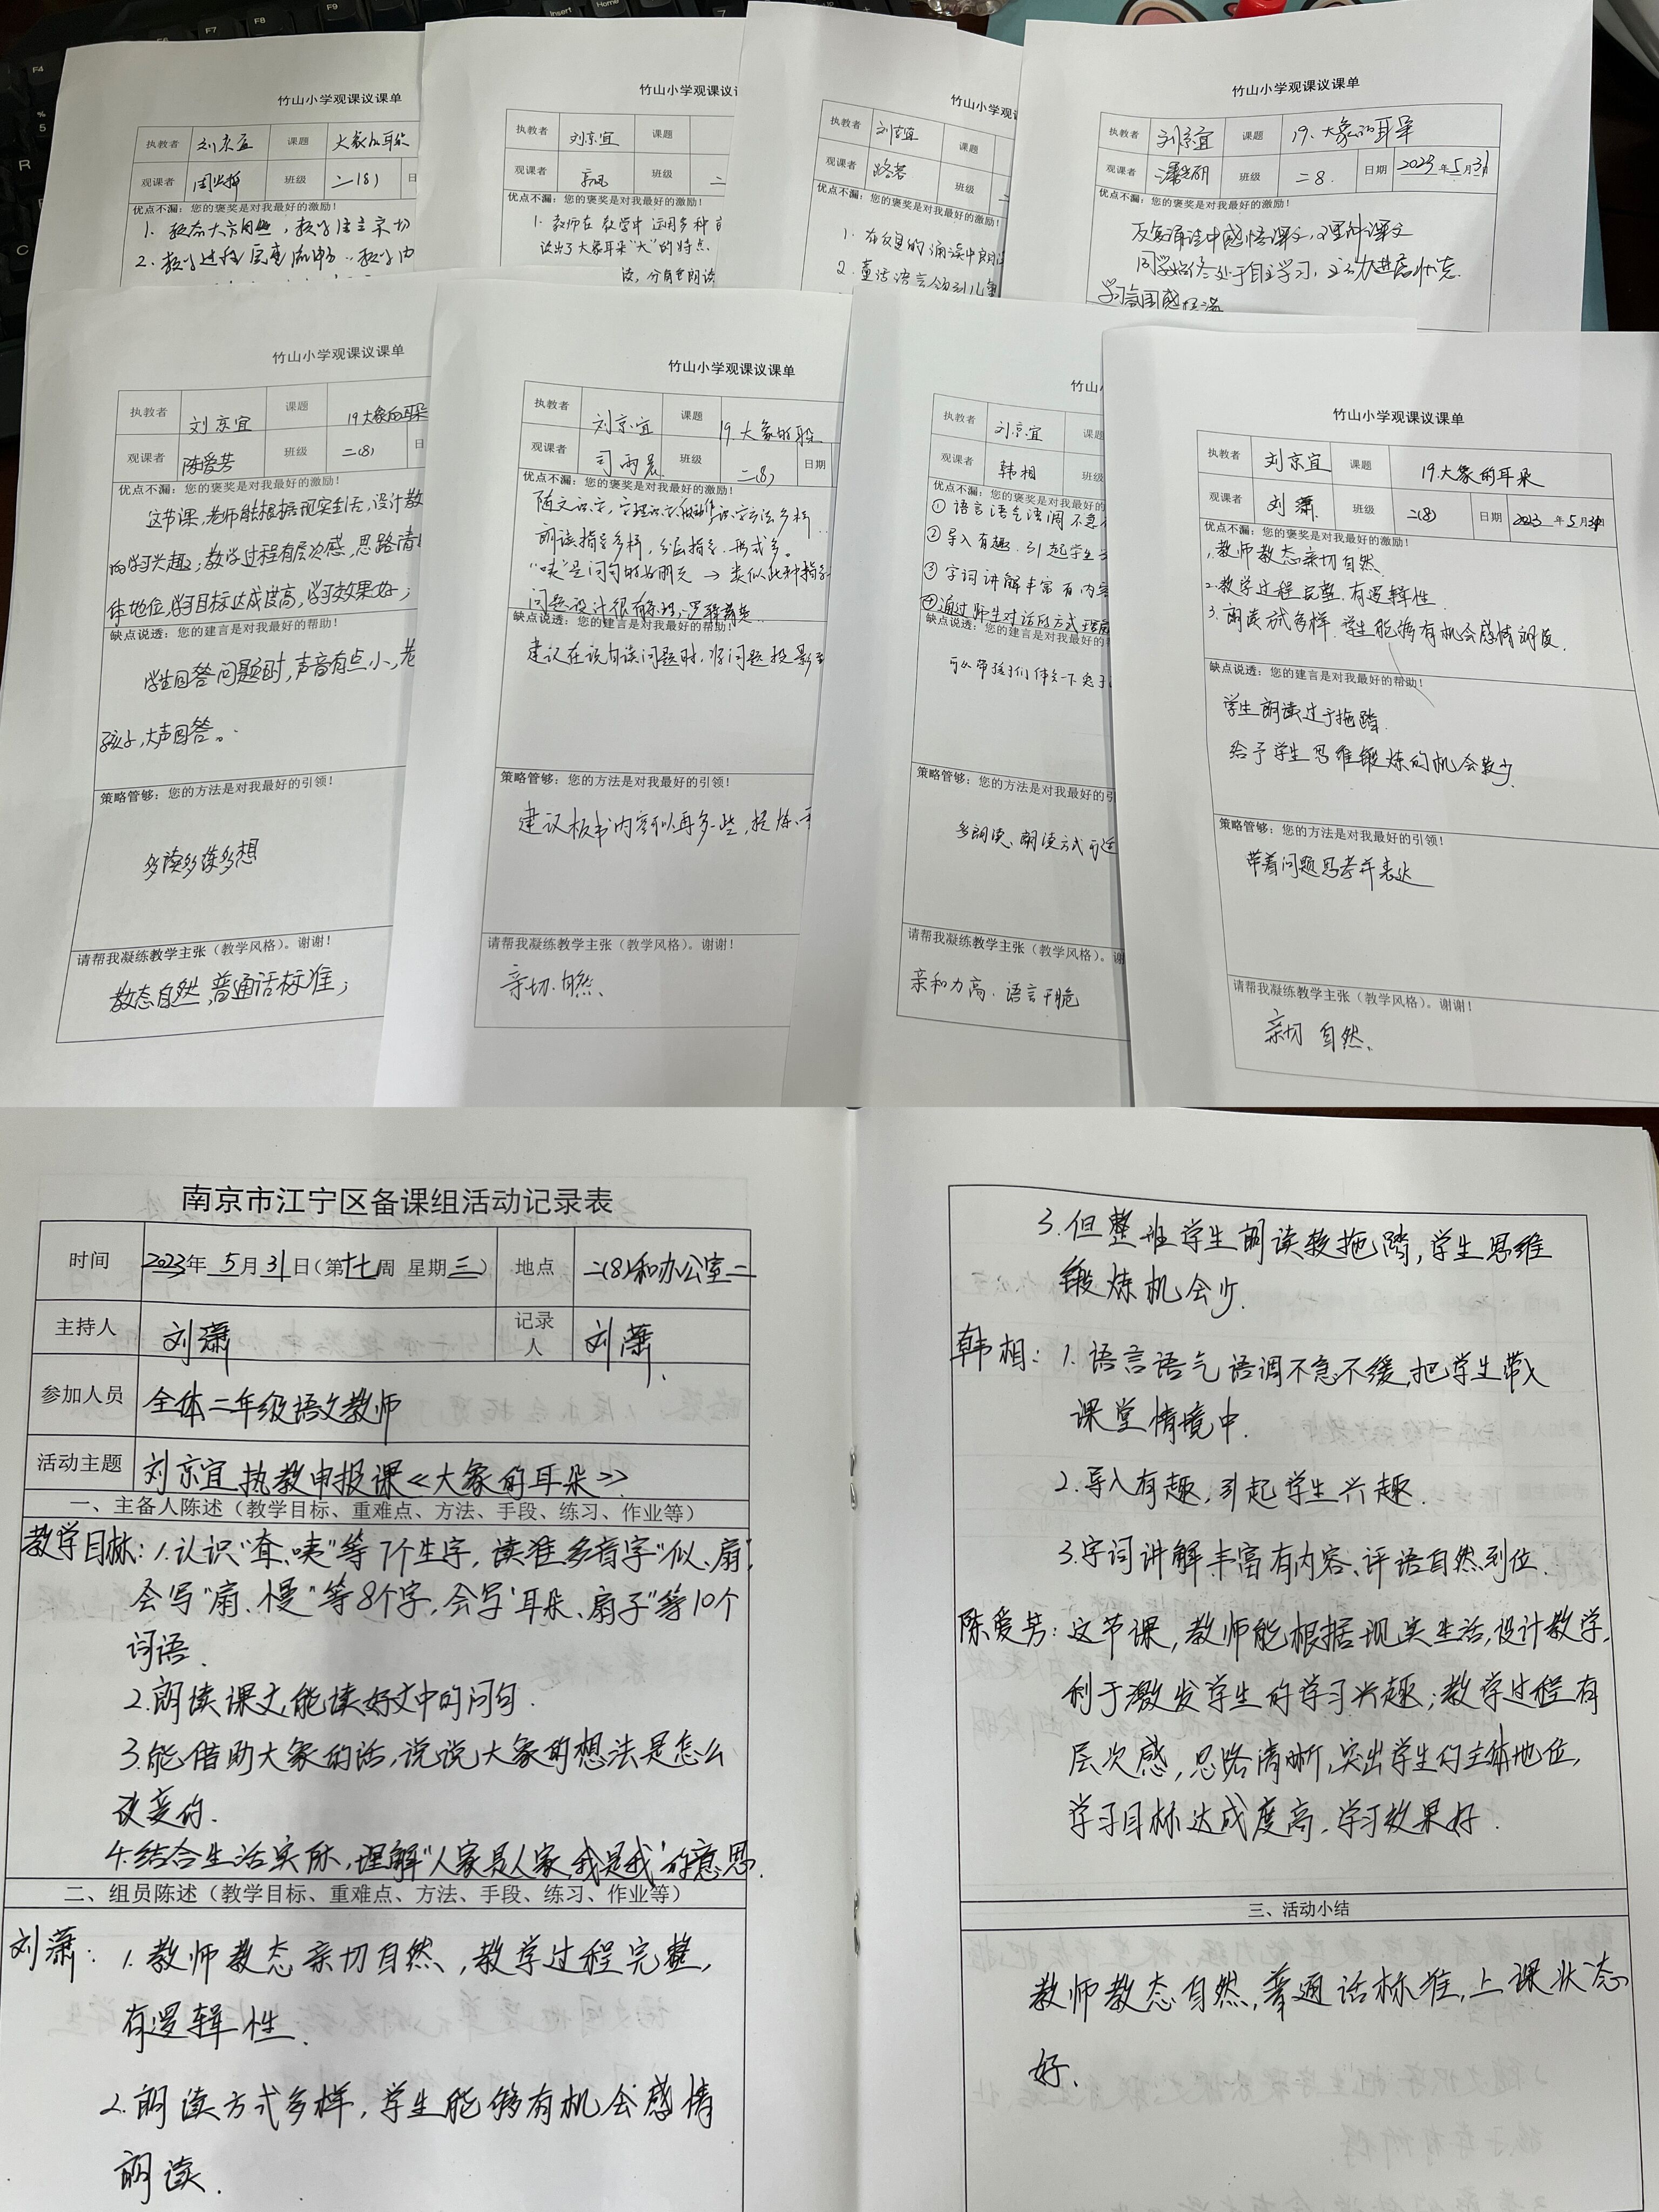 竹山小学观课议课单
执教者 刘京宜 课题 大象的耳朵
观课者 班级 二(8)
优点不漏：您的褒奖是对我最好的激励！
1. 教态大方自然，教学语言亲切
2. 教学过程层层流畅，教学内
竹山小学观课议
执教者 刘京宜 课题
观课者 班级 二
优点不漏：您的褒奖是对我最好的激励！
1. 教师在教学中运用多种
读出了大象耳朵“大”的特点.
读，分角色朗读
竹山小学观
执教者 刘京宜 课题
观课者 路蓉 班级
优点不漏：您的褒奖是对我最好的激励！
1. 在反复的诵读中
2. 童话语言
竹山小学观课议课单
执教者 刘京宜 课题 19、大象的耳朵
观课者 班级 二8. 日期 2023年5月31
优点不漏：您的褒奖是对我最好的激励！
反复诵读中感悟课文，理解课文
同学始终处于自主学习，主动进展状态.
学习氛围感
竹山小学观课议课单
执教者 刘京宜 课题 19大象的耳朵
观课者 陈爱芳 班级 二(8) 日
优点不漏：您的褒奖是对我最好的激励！
这节课，老师能根据现实生活，设计教
的学习兴趣；教学过程有层次感，思路清
体地位，学习目标达成度高，学习效果好；
缺点说透：您的建言是对我最好的帮助！
学生回答问题时，声音有点小，老
孩子，大声回答。
策略管够：您的方法是对我最好的引领！
多读多练多想
请帮我凝练教学主张（教学风格）。谢谢！
教态自然，普通话标准；
竹山小学观课议课单
执教者 刘京宜 课题 19.大象的耳朵
观课者 司雨晨 班级 二(8) 日期
优点不漏：您的褒奖是对我最好的激励！
随文识字，字理识字，识字方法多样
朗读指导多样，分层指导，形式多。
“咦”是问句的好朋友→类似此种指导
问题设计很有条理，逻辑清楚.
缺点说透：您的建言是对我最好的帮助！
建议在说句读问题时，将问题投影
策略管够：您的方法是对我最好的引领！
建议板书内容可以再多一些，提炼
请帮我凝练教学主张（教学风格）。谢谢！
亲切、自然、
竹山
执教者 刘京宜 课题
观课者 韩相 班级
优点不漏：您的褒奖是对我最好的
①语言语气语调不急
②导入有趣，引起学生
③字词讲解丰富有内容
④通过师生对话的方式理解
缺点说透：您的建言是对我最好的
可以带孩子们体会一下兔子
策略管够：您的方法是对我最好的引
多朗读、朗读方式可
请帮我凝练教学主张（教学风格）。谢
亲和力高，语言干脆
竹山小学观课议课单
执教者 刘京宜 课题 19.大象的耳朵
观课者 刘潇 班级 二(8) 日期 2023年5月31日
优点不漏：您的褒奖是对我最好的激励！
1.教师教态亲切自然.
2.教学过程完整，有逻辑性.
3.朗读方式多样，学生能够有机会感情朗读.
缺点说透：您的建言是对我最好的帮助！
学生朗读过于拖踏.
给予学生思维锻炼的机会较少.
策略管够：您的方法是对我最好的引领！
带着问题思考并表达
请帮我凝练教学主张（教学风格）。谢谢！
亲切 自然、
南京市江宁区备课组活动记录表
时间 2023年5月31日（第十七周 星期三） 地点 二(8)和办公室二
主持人 刘潇 记录人 刘潇
参加人员 全体二年级语文教师
活动主题 刘京宜执教申报课《大象的耳朵》
一、主备人陈述（教学目标、重难点、方法、手段、练习、作业等）
教学目标：1.认识“耷、咦”等7个生字，读准多音字“似、扇”，
会写“扇、慢”等8个字，会写“耳朵、扇子”等10个
词语.
2.朗读课文，能读好文中的问句.
3.能借助大象的话，说说大象的想法是怎么
改变的.
4.结合生活实际，理解“人家是人家，我是我”的意思.
二、组员陈述（教学目标、重难点、方法、手段、练习、作业等）
刘潇：1.教师教态亲切自然、，教学过程完整，
有逻辑性.
2.朗读方式多样，学生能够有机会感情
朗读.
3.但整班学生朗读较拖踏，学生思维
锻炼机会少.
韩相：1.语言语气语调不急不缓，把学生带入
课堂情境中.
2.导入有趣，引起学生兴趣.
3.字词讲解丰富有内容、评语自然到位.
陈爱芳：这节课，教师能根据现实生活，设计教学，
利于激发学生的学习兴趣；教学过程有
层次感，思路清晰，突出学生的主体地位，
学习目标达成度高，学习效果好.
三、活动小结
教师教态自然，普通话标准，上课状态
好.